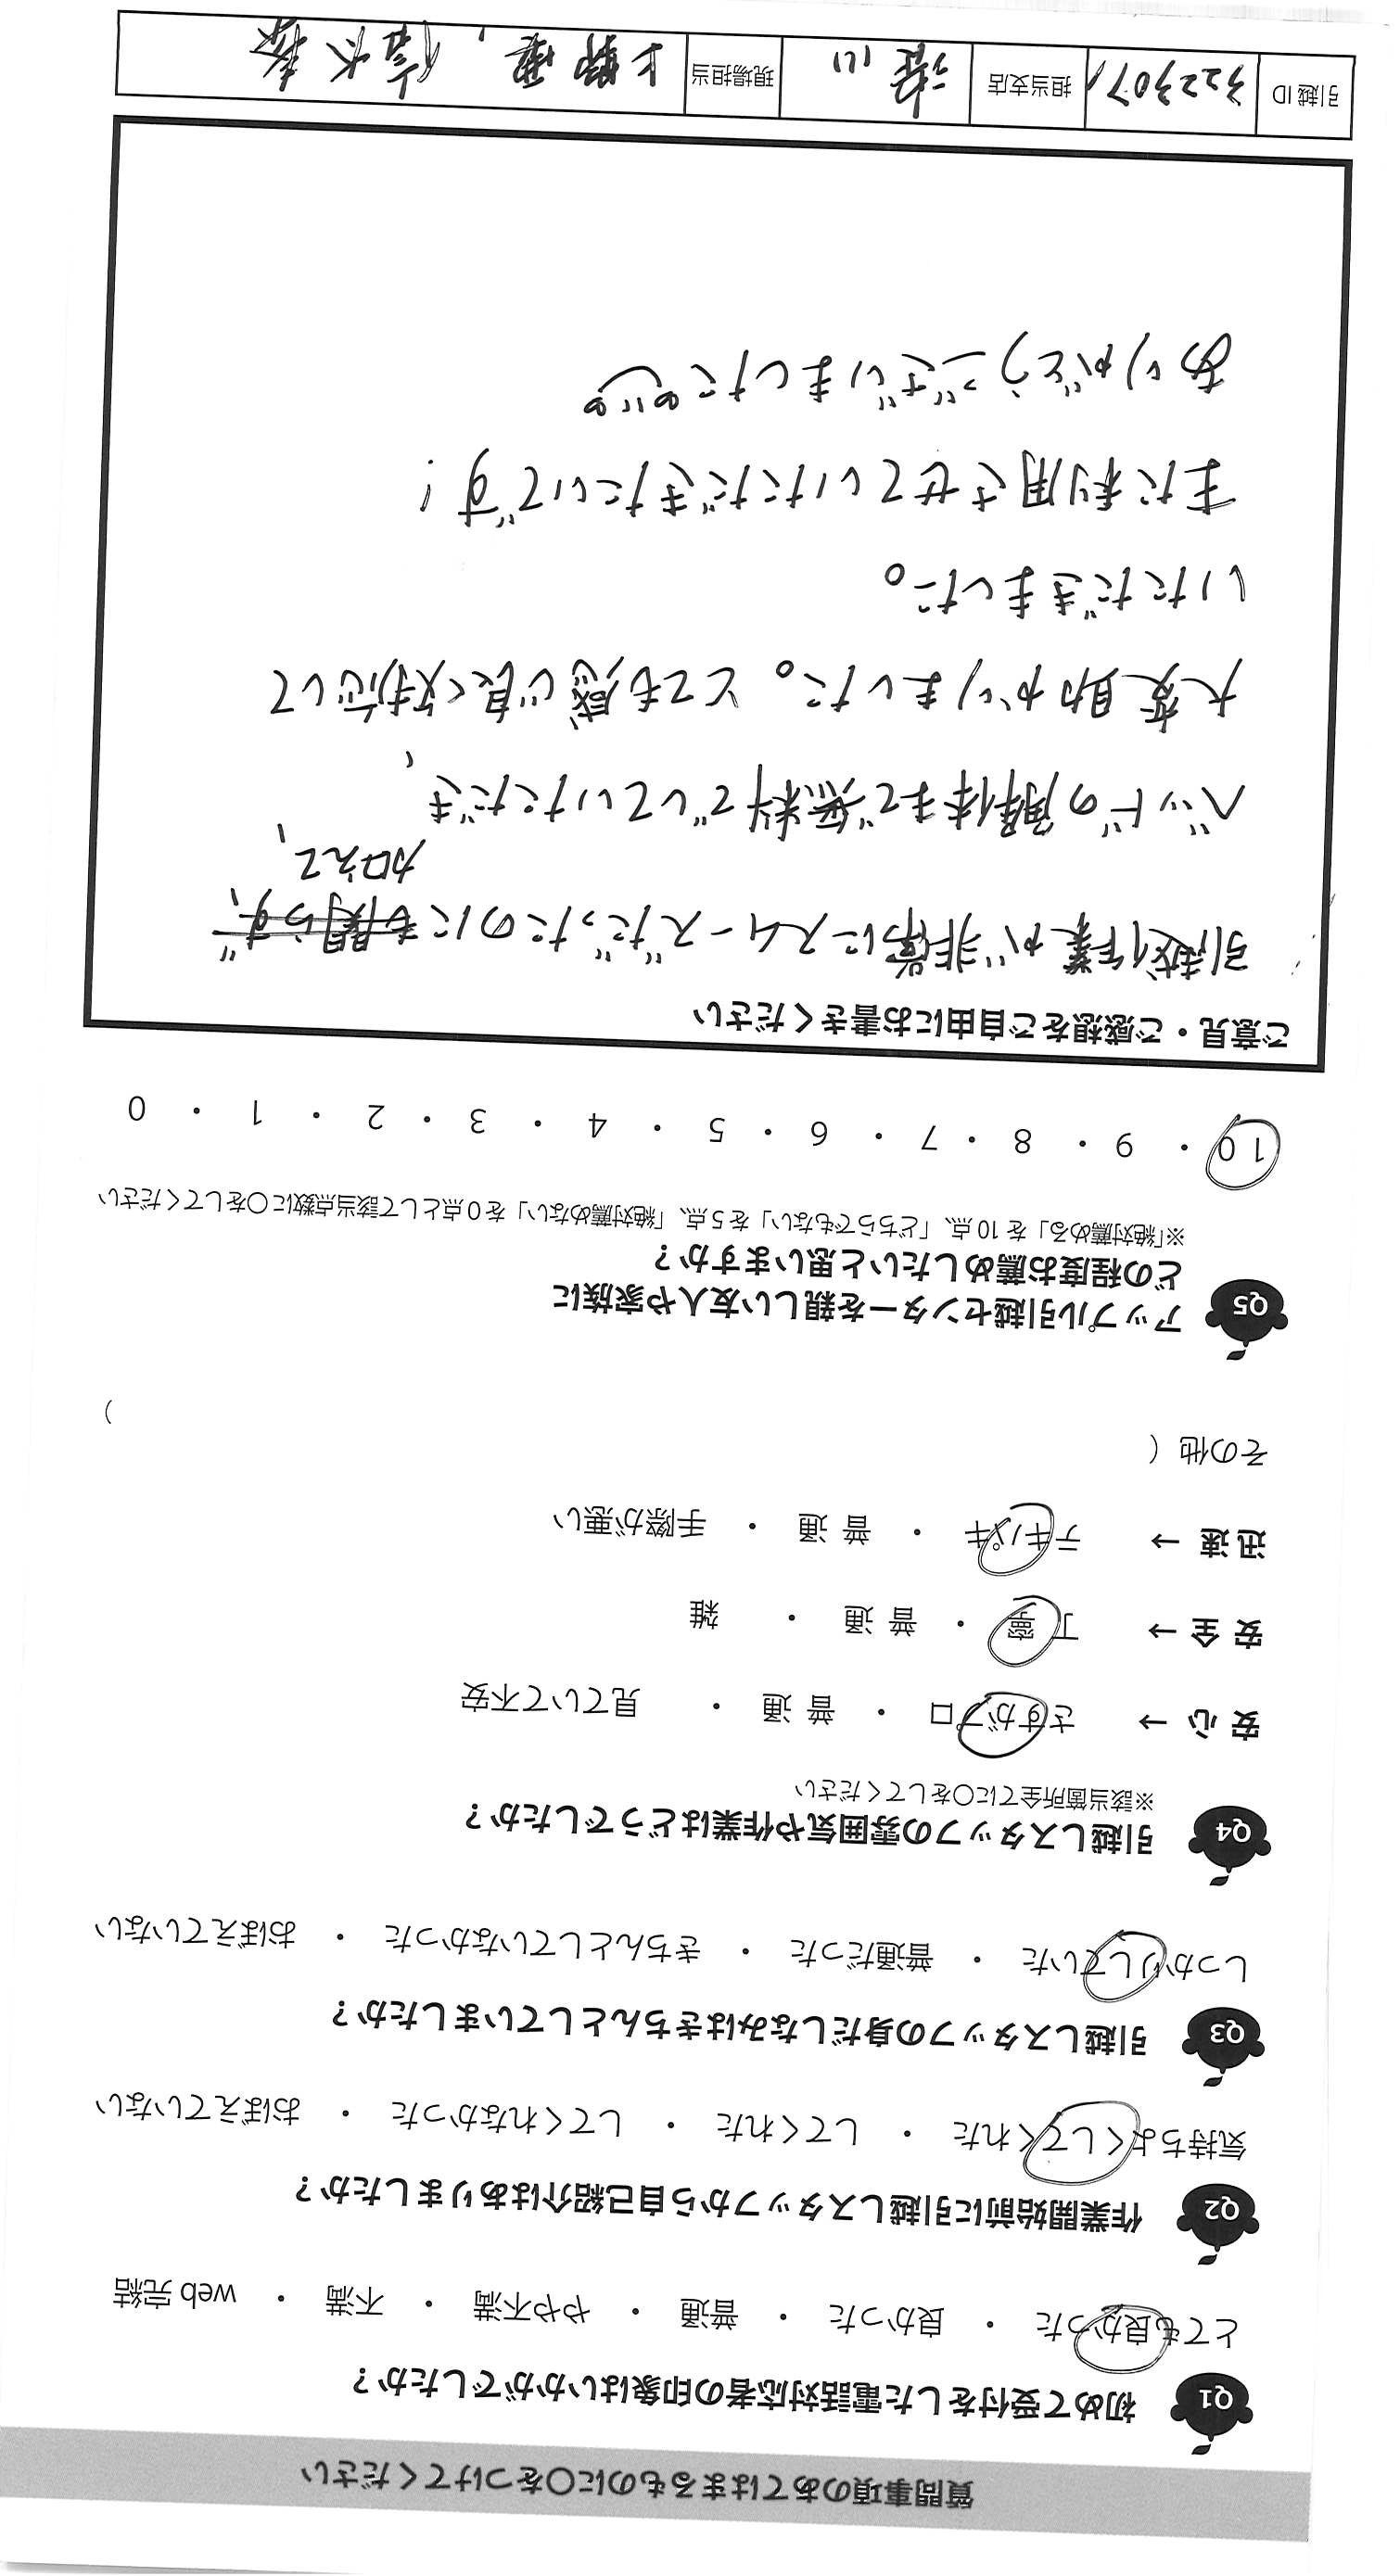 質問事項のあてはまるものに〇をつけてください
Q1 初めて受付をした電話対応者の印象はいかがでしたか？
とても良かった ・ 良かった ・ 普通 ・ やや不満 ・ 不満 ・ web 完結
Q2 作業開始前に引越しスタッフから自己紹介はありましたか？
気持ちよくしてくれた ・ してくれた ・ してくれなかった ・ おぼえていない
Q3 引越しスタッフの身だしなみはきちんとしていましたか？
しっかりしていた ・ 普通だった ・ きちんとしていなかった ・ おぼえていない
Q4 引越しスタッフの雰囲気や作業はどうでしたか？
※該当箇所全てに〇をしてください
安 心 → さすがプロ ・ 普 通 ・ 見ていて不安
安 全 → 丁 寧 ・ 普 通 ・ 雑
迅 速 → テキパキ ・ 普 通 ・ 手際が悪い
その他（ ）
Q5 アップル引越センターを親しい友人や家族に
どの程度お薦めしたいと思いますか？
※「絶対薦める」を 10 点、「どちらでもない」を 5 点、「絶対薦めない」を 0 点として該当点数に〇をしてください
10 ・ 9 ・ 8 ・ 7 ・ 6 ・ 5 ・ 4 ・ 3 ・ 2 ・ 1 ・ 0
ご意見・ご感想をご自由にお書きください
引越作業が非常にスムーズだったのにも関らず、
加えて、
ベッドの解体まで無料でしていただき、
大変助かりました。とても感じ良く対応して
いただきました。
また利用させていただきたいです！
ありがとうございました
引越 ID 3223071 担当支店 港川 現場担当 上野